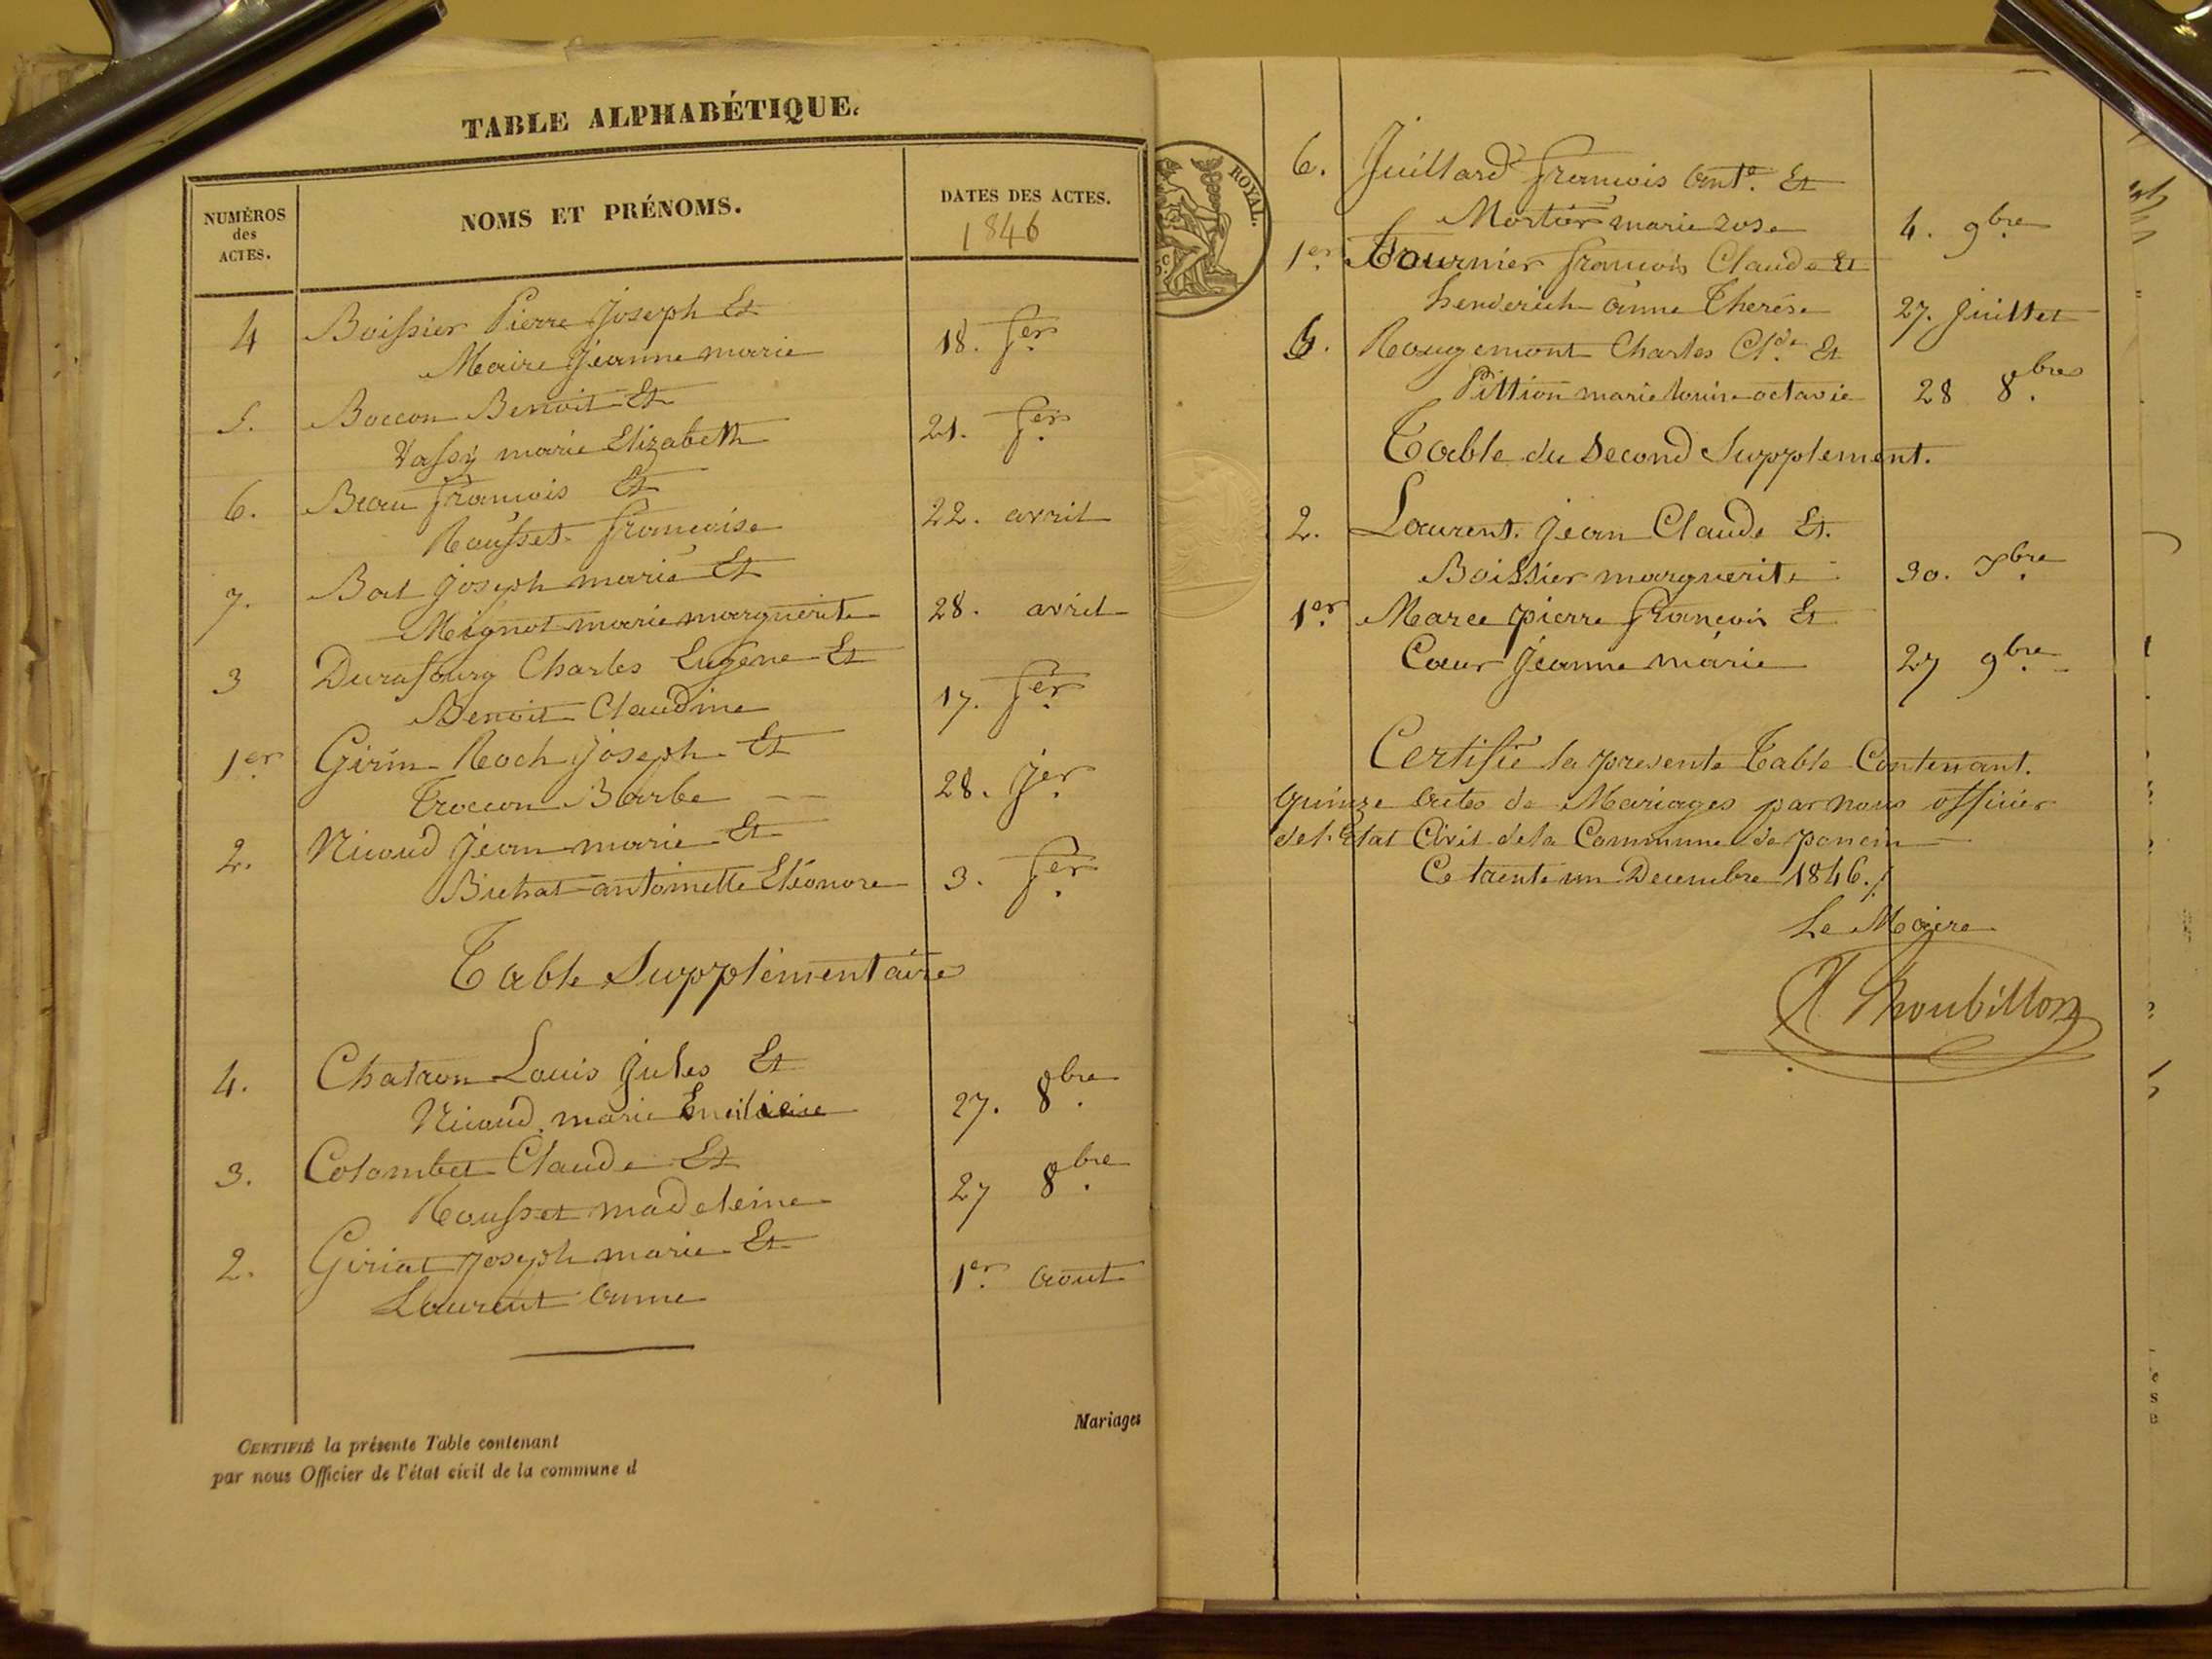 TABLE ALPHABÉTIQUE.
NUMÉROS des ACTES.
NOMS ET PRÉNOMS.
DATES DES ACTES.
1846
4 Boissier Pierre Joseph Et
Maire Jeanne marie 18. fer
5. Boccon Benoit Et
Vassy marie Elizabeth 21. fer
6. Beau françois Et
Rousset françoise 22. avril
7. Bat joseph marie Et
Mignot marie marguerite 28. avril
3 Durafourg Charles Eugène Et
Benoit Claudine 17. fer
1er Girin Roch joseph Et
Troccon Barbe 28. Jer
2. Nicoud jean marie Et
Bichat antoinette Eléonore 3. fer
Table Supplémentaire
4. Chatron Louis jules Et
Nicoud marie 27. 8bre
3. Colombet Claude Et
Rousset madeleine 27 8bre
2. Giriat joseph marie Et
Laurent anne 1er aout
Mariages
CERTIFIÉ la présente Table contenant
par nous Officier de l'état civil de la commune d
ROYAL.
6. Juillard françois ante. Et
Mortier marie rose 4. 9bre
1er. Fournier françois Claude Et
anne Therése 27. juillet
5. Rougemont Charles Clde Et
Pittion marie louise octavie 28 8bre
Table du Second Supplement.
2. Laurent. jean Claude Et.
Boissier marguerite 30. Xbre
1er. Marce pierre françois Et
Cœur jeanne marie 27 9bre
Certifié la presente Table Contenant.
quinze actes de Mariages par nous officier
de l'Etat Civil de la Commune de poncin
Ce trente un Decembre 1846./.
Le Maire